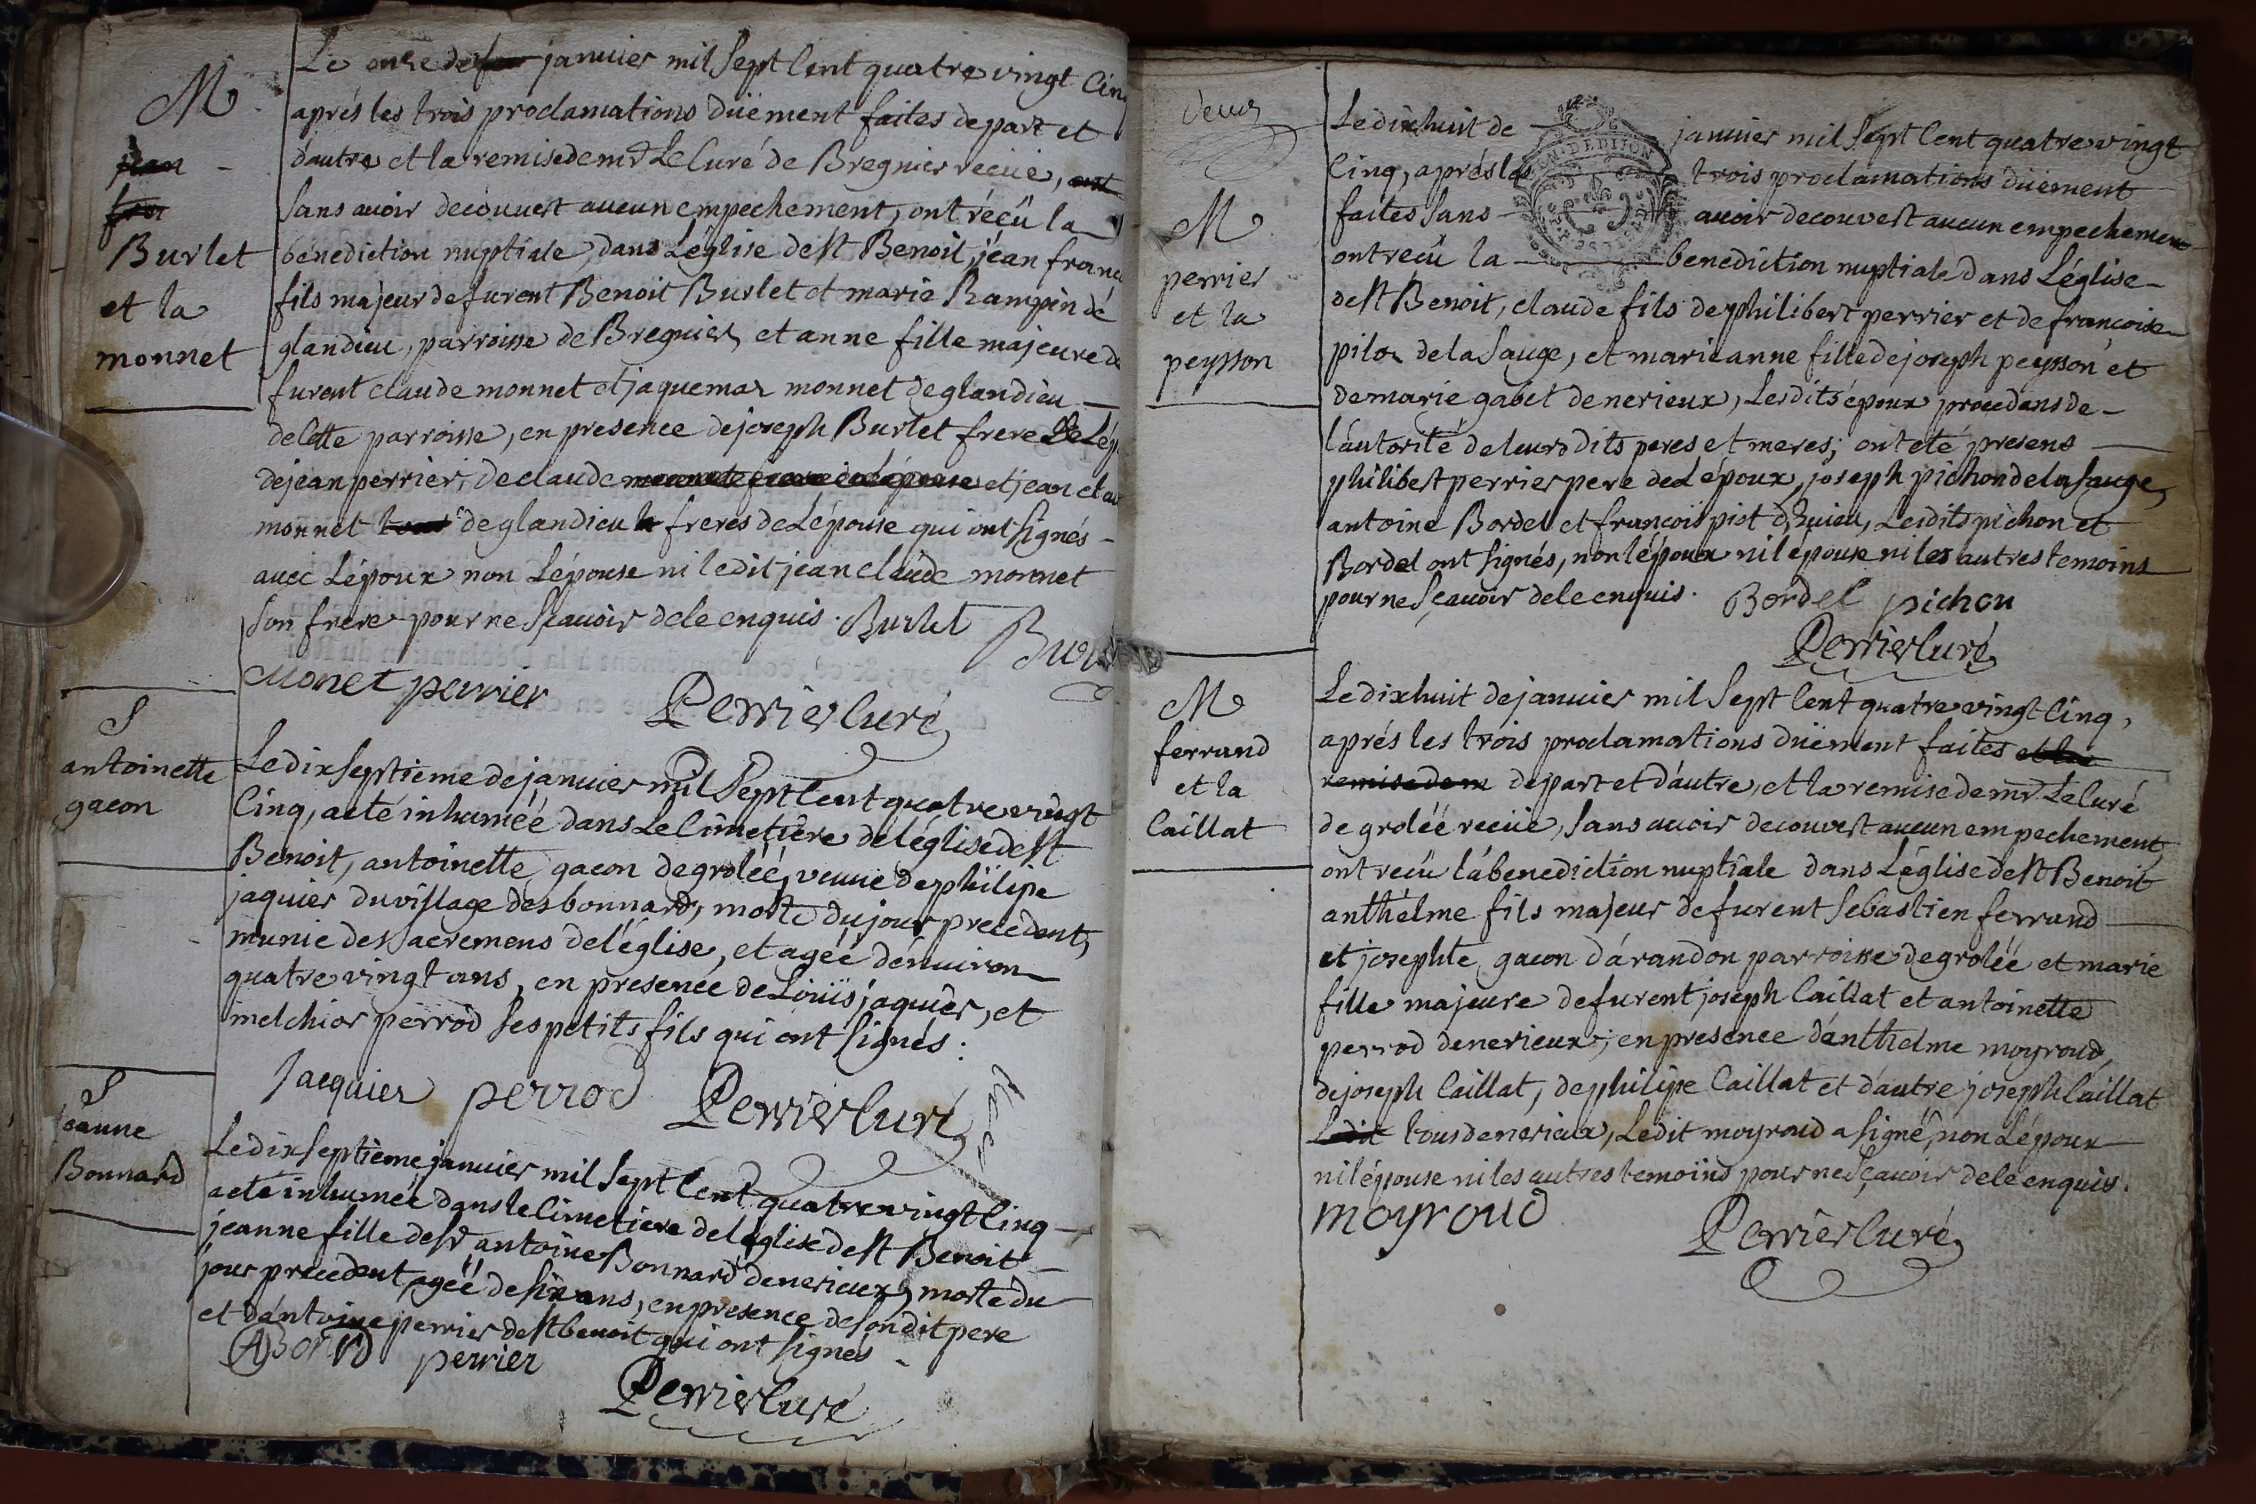 M
jean
fra
Burlet
et la
monnet
Le onze de janvier mil sept Cent quatre vingt Cinq
aprés les trois proclamations düëment faites de part et
d'autre et la remise de mr Le Curé de Bregnier recüe,
sans avoir decouvert aucun empechement, ont réçü la
bénediction nuptiale dans L'église de st Benoit, jéan franc
fils majeur de furent Benoit Burlet et marie Rampin dé
glandieu, parroisse de Bregnier, et anne fille majeure de
furent claude monnet et jaquemaz monnet de glandieu
de Cette parroisse, en presence de joseph Burlet frere De L'ép
de jean perrier, de claude monnet frere de L'épouse et jean cl
monnet tous de glandieu freres de L'épouse qui ont signés
avec L'époux non L'épouse ni le dit jean claude monnet
son frere pour ne sçavoir de ce enquis. Burlet
Bur
Monet perrier
Perrier Curé
S
antoinette
gacon
Le dix septieme de janvier mil sept Cent quatre vingt
Cinq, a eté inhuméé dans Le Cimetiére de l'église de st
Benoit, antoinette gacon de groléé, veuve de philipe
jaquier du village des bonnard, morte du jour precedent,
munie des sacremens de l'église, et agéé d'environ
quatre vingt ans, en presence de Loüis jaquier, et
melchior perrod ses petits fils qui ont signés.
Jacquier perrod Perrier Curé
S
jeanne
Bonnard
Le dix septième janvier mil sept Cent quatre vingt Cinq
a eté inhumée dans le Cimetiere de l'église de st Benoit
jeanne fille de sr antoine Bonnard de nerieux, morte du
jour precedent, agéé de six ans, en presence de son dit pere
et d'antoine perrier de st benoit qui ont signés
perrier
Perrier Curé
deux
M
perrier
et la
peysson
Le dix huit de janvier mil sept Cent quatre vingt
Cinq, aprés les trois proclamations düëment
faites sans avoir decouvert aucun empechement
ont reçü la benediction nuptiale dans L'église
de st Benoit, claude fils de philibert perrier et de francoise
piloz de la sauge, et marieanne fille de joseph peysson et
de marie gabet de nerieux, Lesdits époux procedans de
l'autorité de leurs dits peres et meres; ont eté presens
philibert perrier pere de L'époux, joseph pichon de la sauge,
antoine Bordel et françois piot d'huieu, Lesdits pichon et
Bordel ont signés, non l'époux ni l'épouse ni les autres temoins
pour ne sçavoir de ce enquis. Bordel pichon
Perrier Curé
M
ferrand
et la
Caillat
Le dix huit de janvier mil sept Cent quatre vingt Cinq,
aprés les trois proclamations düëment faites et la
remise de m de part et d'autre, et la remise de mr. Le Curé
de groléé recüe, sans avoir decouvert aucun empechement,
ont reçü la benediction nuptiale dans L'église de st Benoit
anthélme fils majeur de furent sebastien ferrand
et josephte gacon d'arandon parroisse de groléé et marie
fille majeure de furent joseph Caillat et antoinette
perrod de nerieux; en presence d'anthélme moyroud,
de joseph Caillat, de philipe Caillat et d'autre joseph Caillat
Ledit tous de nerieux, Ledit moyroud a signé, non L'époux
ni l'épouse ni les autres temoins pour ne sçavoir de ce enquis.
moyroud
Perrier Curé